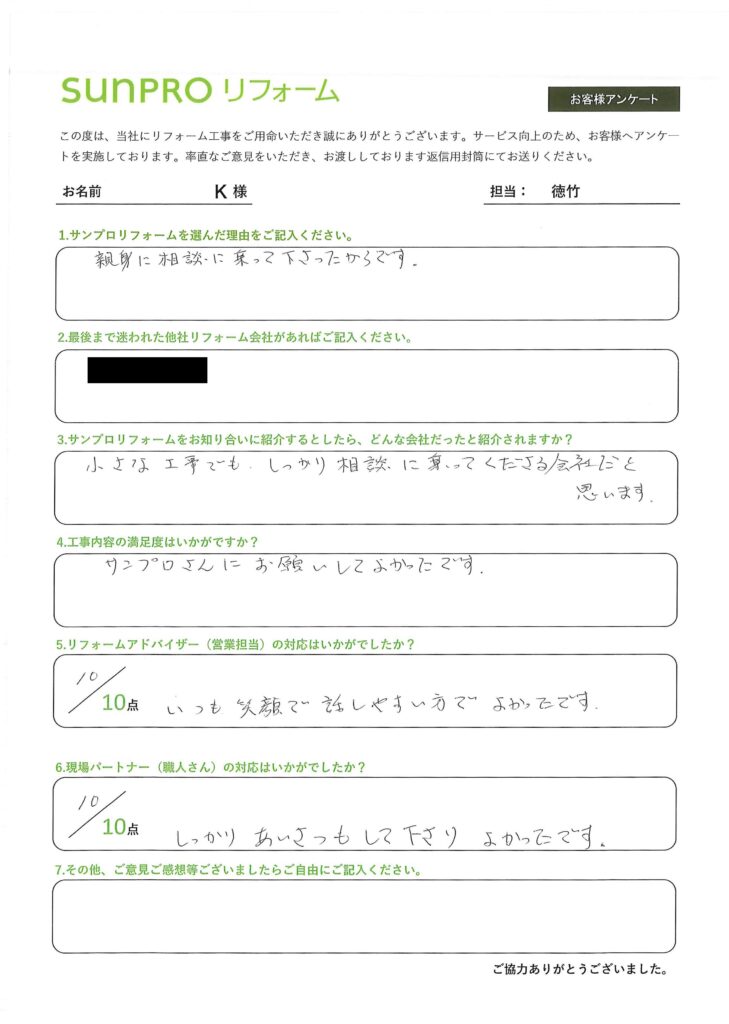 SUNPRO リフォーム
お客様アンケート
この度は、当社にリフォーム工事をご用命いただき誠にありがとうございます。サービス向上のため、お客様へアンケー
トを実施しております。率直なご意見をいただき、お渡ししております返信用封筒にてお送りください。
お名前 K 様 担当： 徳竹
1.サンプロリフォームを選んだ理由をご記入ください。
親身に相談に乗って下さったからです。
2.最後まで迷われた他社リフォーム会社があればご記入ください。
3.サンプロリフォームをお知り合いに紹介するとしたら、どんな会社だったと紹介されますか？
小さな工事でも、しっかり相談に乗ってくださる会社だと
思います。
4.工事内容の満足度はいかがですか？
サンプロさんにお願いしてよかったです。
5.リフォームアドバイザー（営業担当）の対応はいかがでしたか？
10/10点 いつも笑顔で話しやすい方でよかったです。
6.現場パートナー（職人さん）の対応はいかがでしたか？
10/10点 しっかりあいさつもして下さりよかったです。
7.その他、ご意見ご感想等ございましたらご自由にご記入ください。
ご協力ありがとうございました。